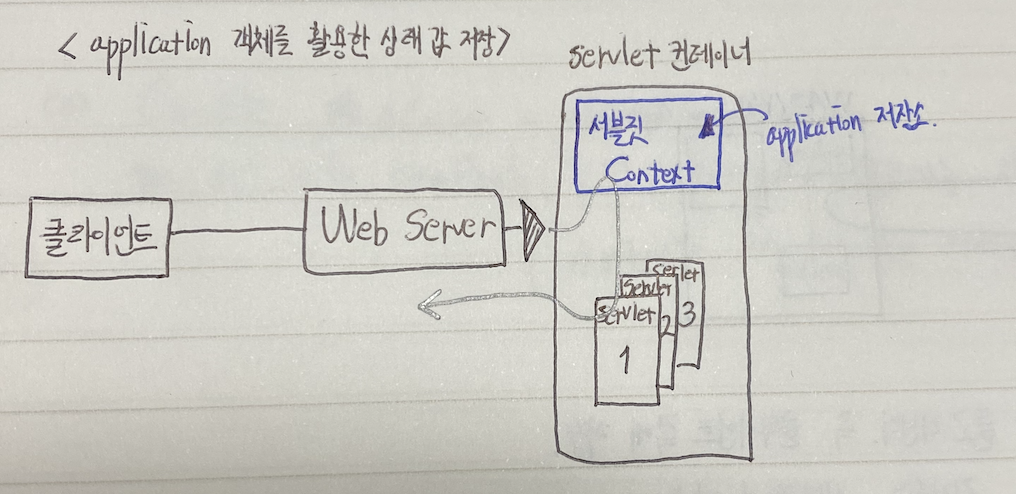 < application 객체를 활용한 상태 값 저장>
servlet 컨테이너
서블릿
Context
application 저장소.
클라이언트
Web Server
Serlet
3
Servler
2
Servler
1